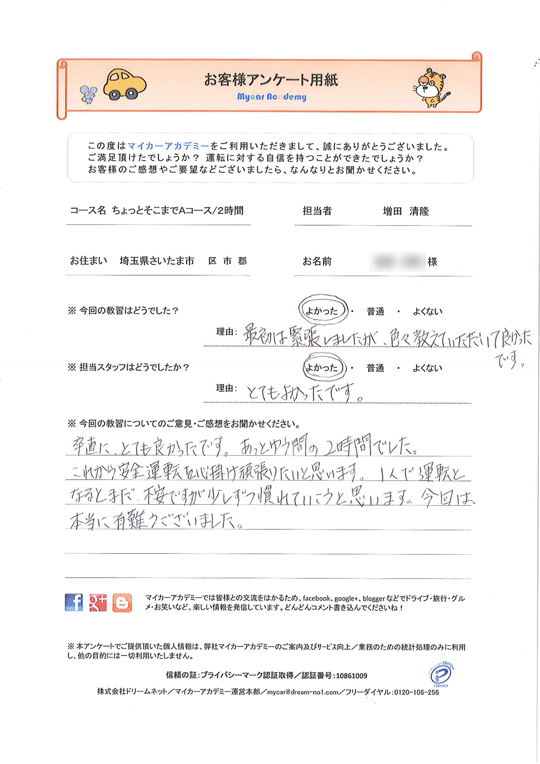 お客様アンケート用紙
Mycar Academy
この度はマイカーアカデミーをご利用いただきまして、誠にありがとうございました。
ご満足頂けたでしょうか？ 運転に対する自信を持つことができたでしょうか？
お客様のご感想やご要望などございましたら、なんなりとお聞かせください。
コース名 ちょっとそこまでAコース/2時間 担当者 増田 清隆
お住まい 埼玉県さいたま市 区 市 郡 お名前 様
※ 今回の教習はどうでした？ よかった ・ 普通 ・ よくない
理由: 最初は緊張しましたが、色々教えていただいて良かった
です。
※ 担当スタッフはどうでしたか？ よかった ・ 普通 ・ よくない
理由: とてもよかったです。
※ 今回の教習についてのご意見・ご感想をお聞かせください。
率直に、とても良かったです。あっとゆう間の2時間でした。
これから安全運転を心掛け頑張りたいと思います。1人で運転と
なるとまだ不安ですが少しずつ慣れていこうと思います。今回は、
本当に有難うございました。
マイカーアカデミーでは皆様との交流をはかるため、facebook、google+、blogger などでドライブ・旅行・グル
メ・お笑いなど、楽しい情報を発信しています。どんどんコメント書き込んでくださいね！
※ 本アンケートでご提供頂いた個人情報は、弊社マイカーアカデミーのご案内及びサービス向上／業務のための統計処理のみに利用
し、他の目的には一切利用いたしません。
信頼の証：プライバシーマーク認証取得／認証番号：10861009
株式会社ドリームネット／マイカーアカデミー運営本部／mycar@dream-no1.com／フリーダイヤル：0120-106-256